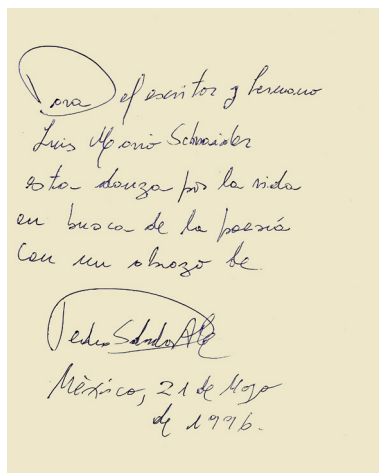 Para el escritor y hermano
Luis Mario Schneider
esta danza por la vida
en busca de la poesía
con un abrazo de
Pedro Salvador Ale
México, 21 de Mayo
de 1996.